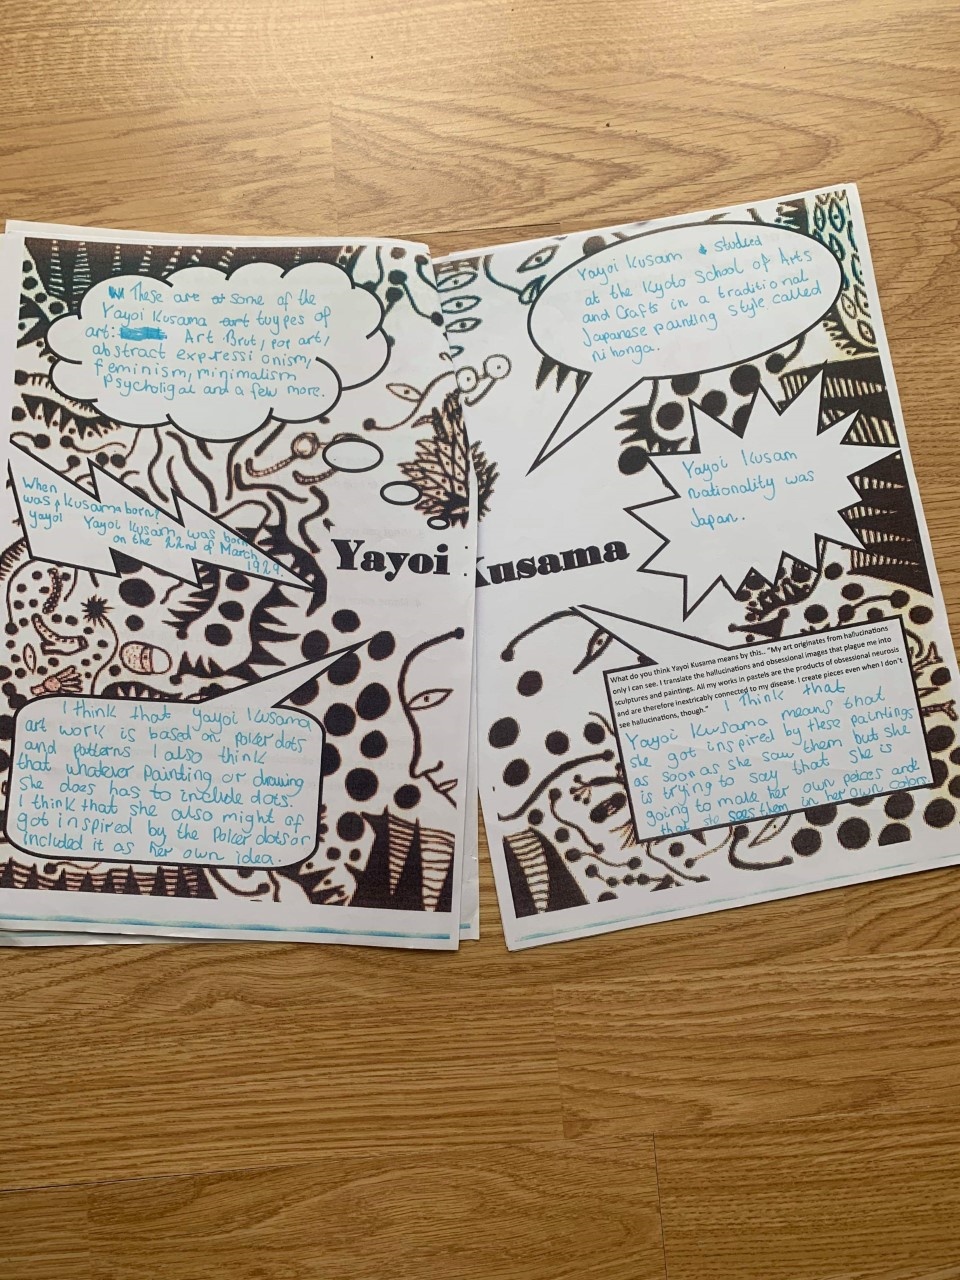 These are some of the
Yayoi Kusama art tuypes of
art: Art Brut, pop art,
abstract expressi onism,
feminism, minimalism
Psycholigal and a few more.
When
was Kusama born?
yayoi Yayoi Kusam was born
on the 22nd of March
1929.
Yayoi Kusama
I think that yayoi Kusama
art work is based on Polker dots
and patterns I also think
that whatever Painting or drawing
She does has to include dots.
I think that she also might of
got inspired by the Polker dots or
Included it as her own idea.
Yayoi Kusam studied
at the Kyoto School of Arts
and Crafts in a traditional
Japanese painting style called
nihonga.
Yayoi Kusam
nationality was
Japan.
What do you think Yayoi Kusama means by this.. "My art originates from hallucinations
only I can see. I translate the hallucinations and obsessional images that plague me into
sculptures and paintings. All my works in pastels are the products of obsessional neurosis
and are therefore inextricably connected to my disease. I create pieces even when I don't
see hallucinations, though." I Think that
Yayoi Kusama means that
she got inspired by these paintings
as soon as she saw them but she
is trying to say that she is
going to make her own peices and
that she sees them in her own colors.